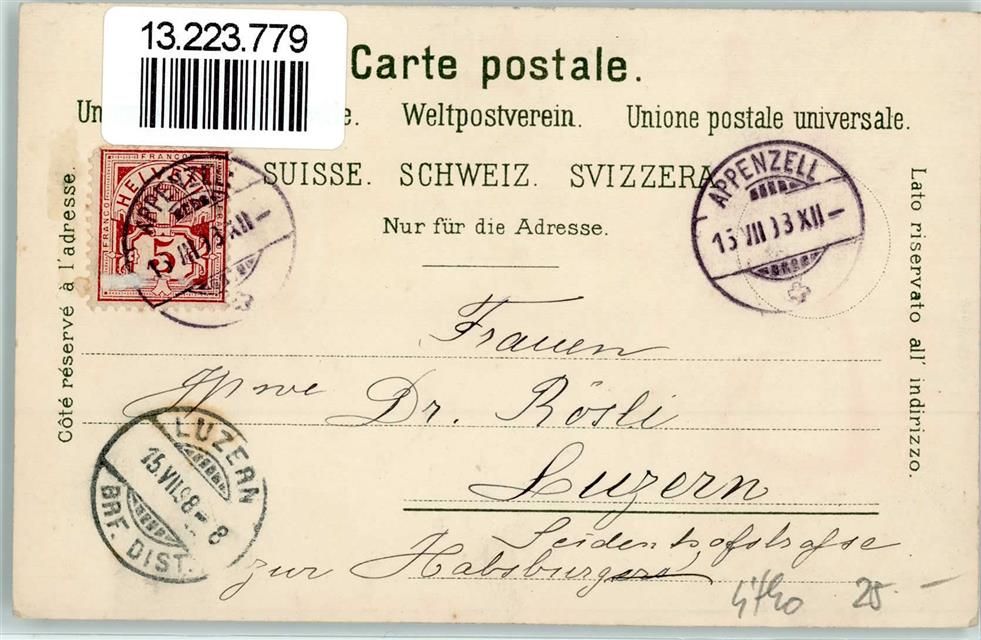 13.223.779
Carte postale.
Un e. Weltpostverein. Unione postale universale.
SUISSE. SCHWEIZ. SVIZZERA
Nur für die Adresse.
Côté réservé à l'adresse.
Lato riservato all' indirizzo.
FRANCO
HELVETIA
FRANCO
5
APPENZELL
XII
APPENZELL
13 VII 93 XII
Frauen
Wwe Dr. Rösli
Luzern
Seidenhofstrasse
zur Habsburg
LUZERN
15.VII.98-8
BRF. DIST.
Litho 25 -